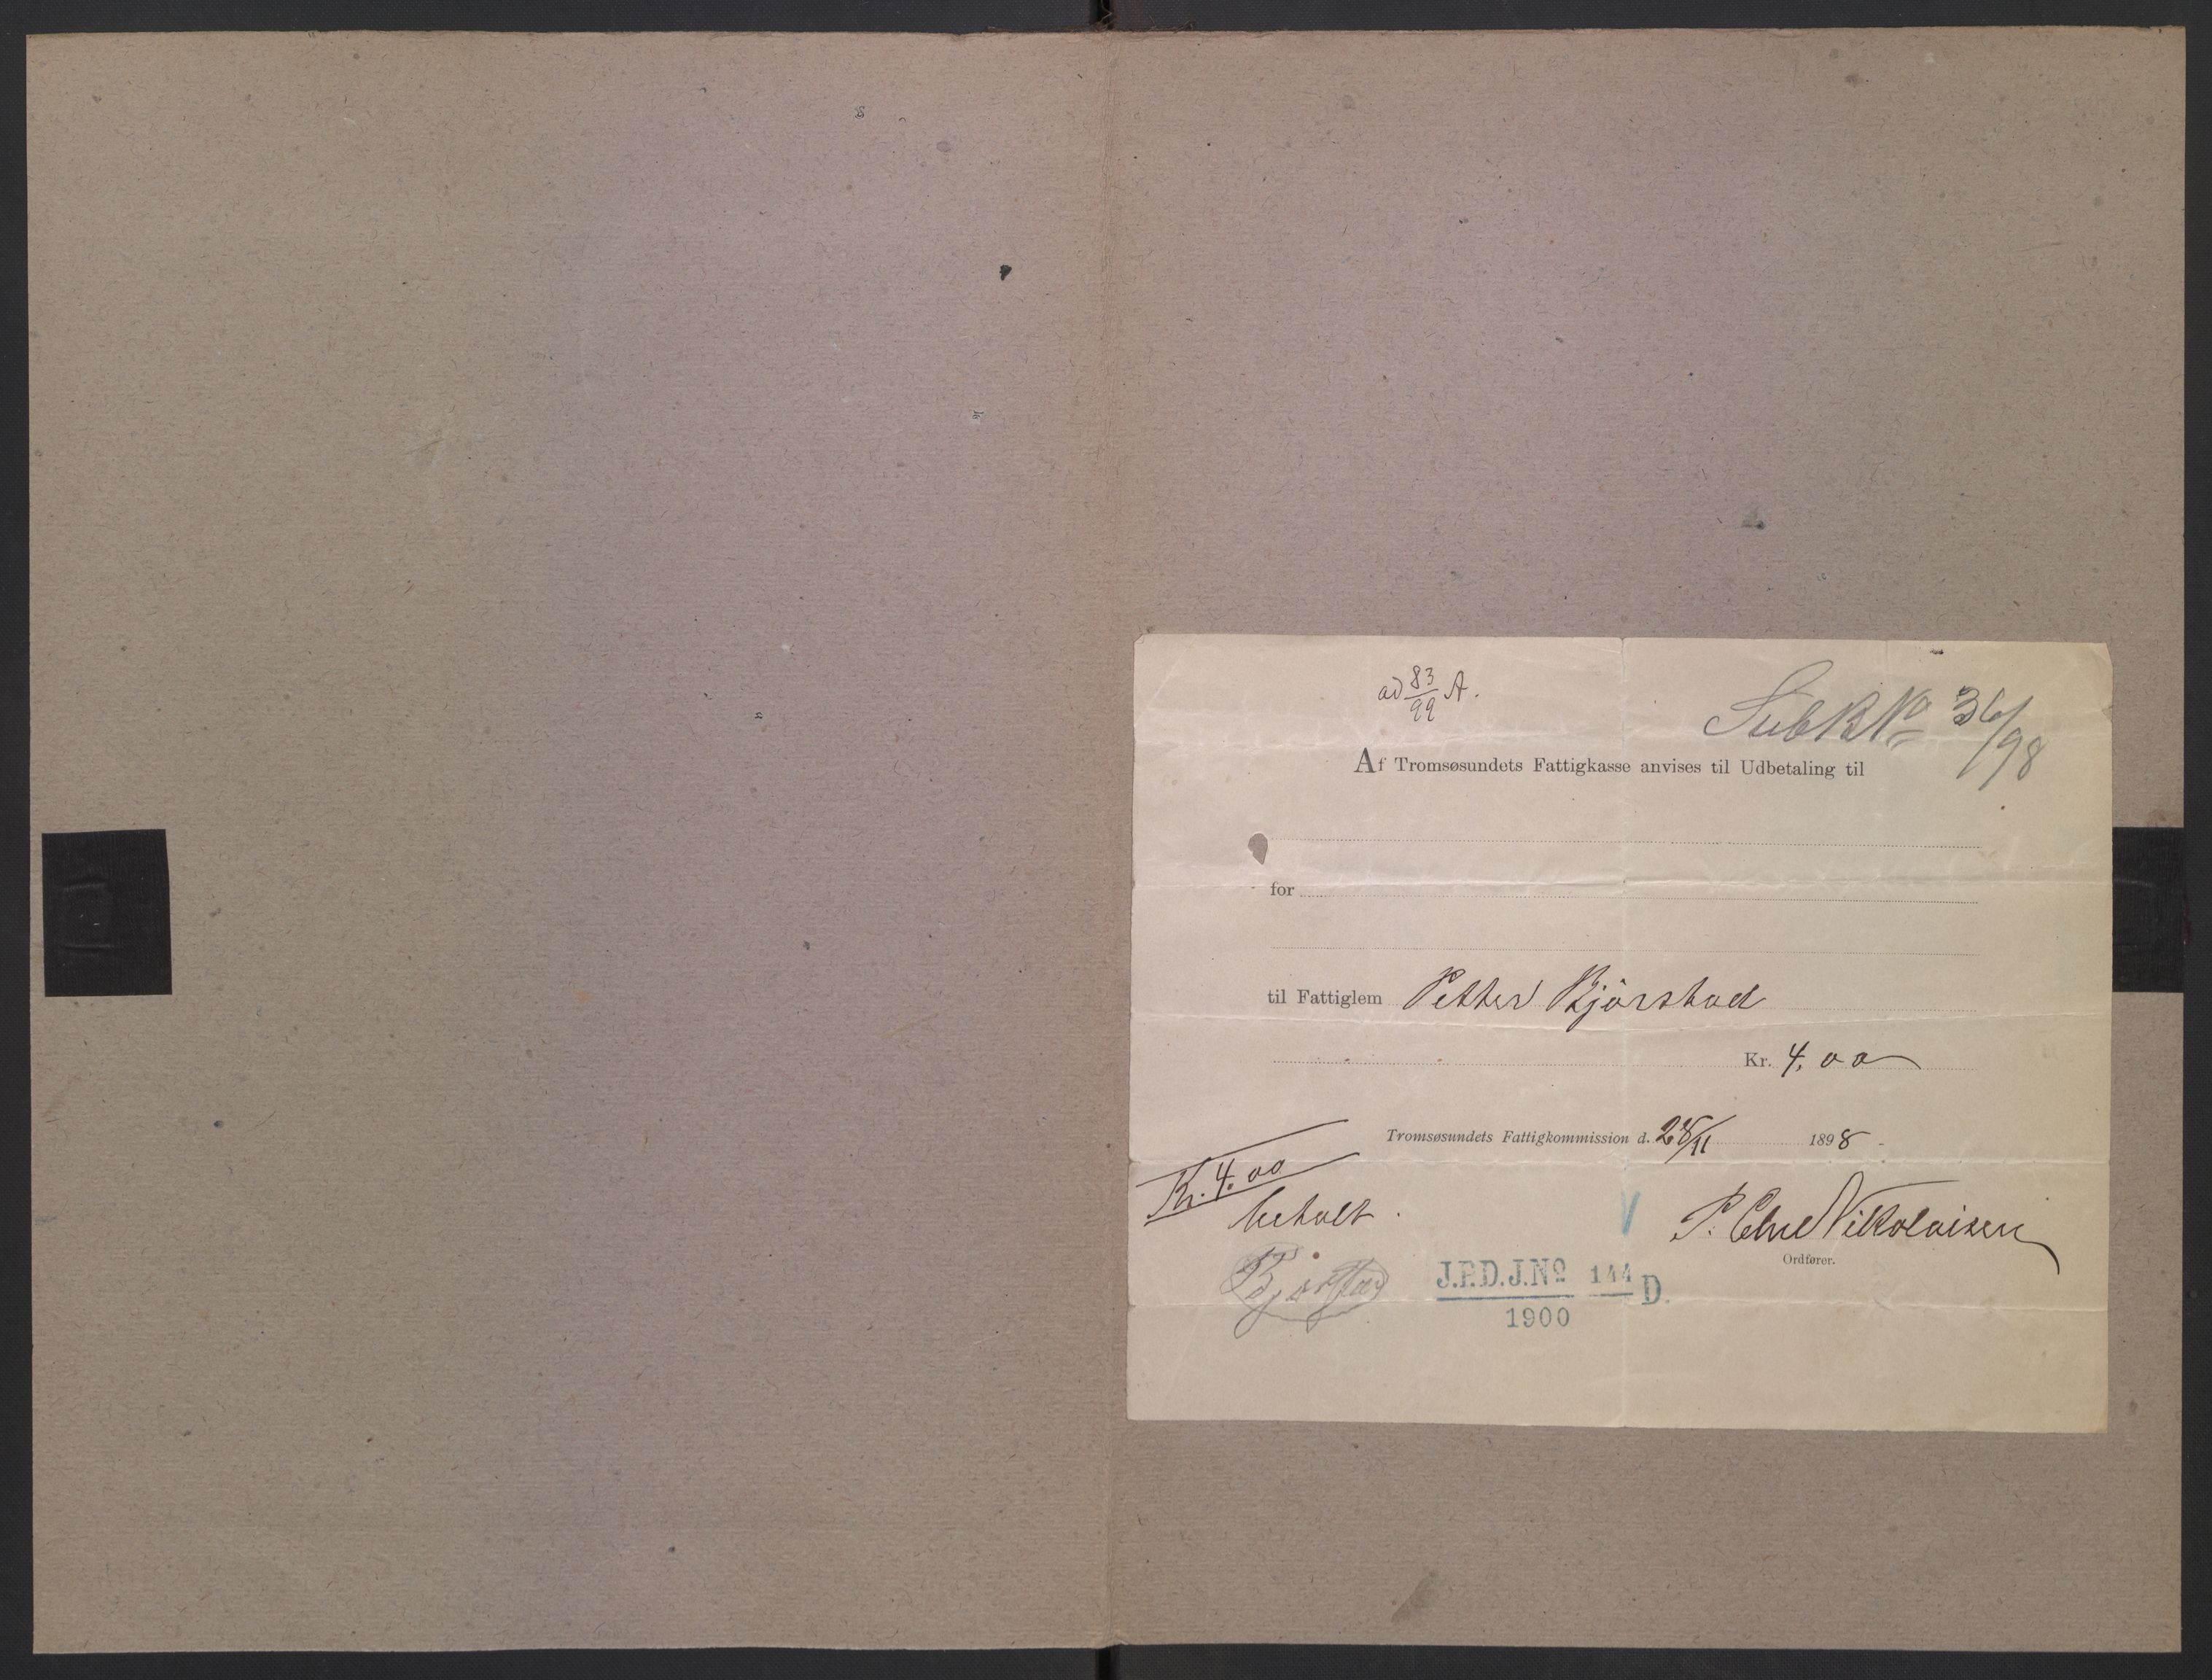 ad 83/99 A.
SubR No 36/98
Af Tromsøsundets Fattigkasse anvises til Udbetaling til
for
til Fattiglem Petter Bjørstad
Kr. 4,00
Tromsøsundets Fattigkommission d. 28/11 1898
Kr. 4.00
betalt
P. Nikolaisen
Ordfører.
J.P.D.J.No 144 D.
1900